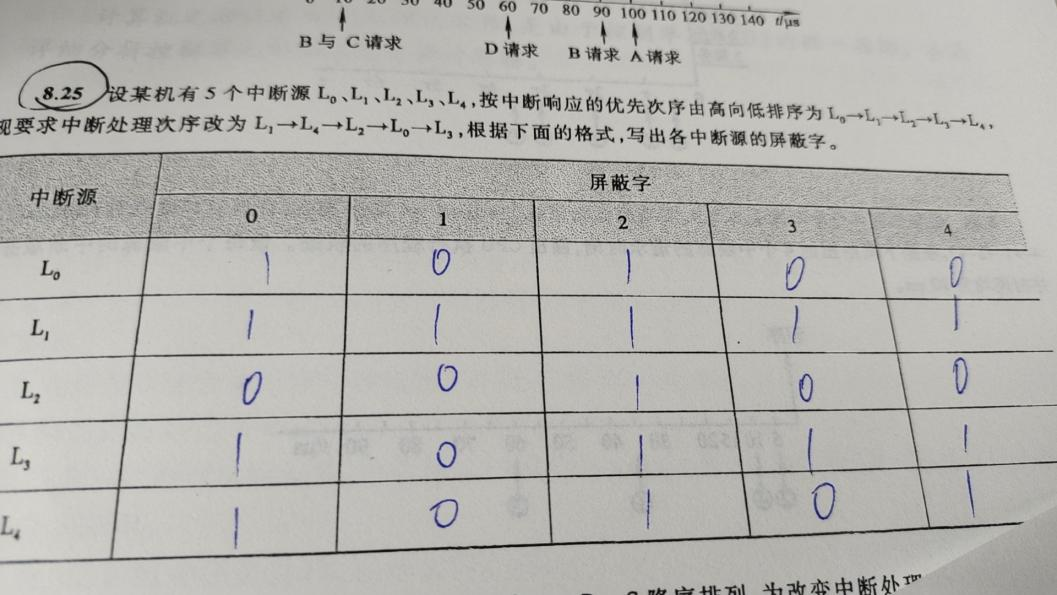 20 30 40 50 60 70 80 90 100 110 120 130 140 t/μs
B 与 C 请求 D 请求 B 请求 A 请求
8.25 设某机有 5 个中断源 L₀、L₁、L₂、L₃、L₄,按中断响应的优先次序由高向低排序为 L₀→L₁→L₂→L₃→L₄,
现要求中断处理次序改为 L₁→L₄→L₂→L₀→L₃,根据下面的格式,写出各中断源的屏蔽字。
中断源 屏蔽字
0 1 2 3 4
L₀ 1 0 1 0 0
L₁ 1 1 1 1 1
L₂ 0 0 1 0 0
L₃ 1 0 1 1 1
L₄ 1 0 1 0 1
降序排列,为改变中断处理